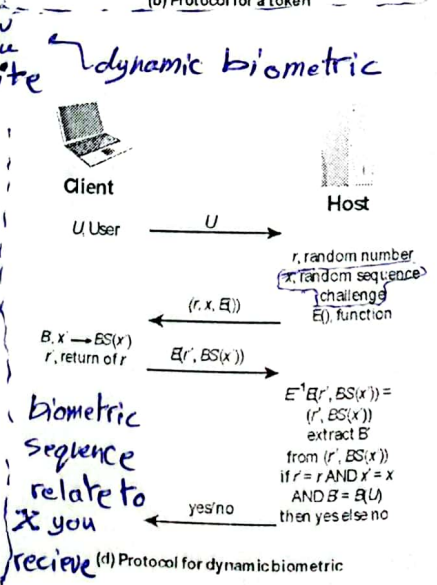 (b) Protocol for a token
dynamic biometric
Client
Host
U, User
U
r, random number
x, random sequence
challenge
E(), function
(r, x, E())
B, x' → BS(x')
r', return of r
E(r', BS(x'))
E⁻¹E(r', BS(x')) =
(r', BS(x'))
extract B'
from (r', BS(x'))
if r' = r AND x' = x
AND B' = B(U)
then yes else no
yes/no
biometric
sequence
relate to
x you
recieve
(d) Protocol for dynamic biometric